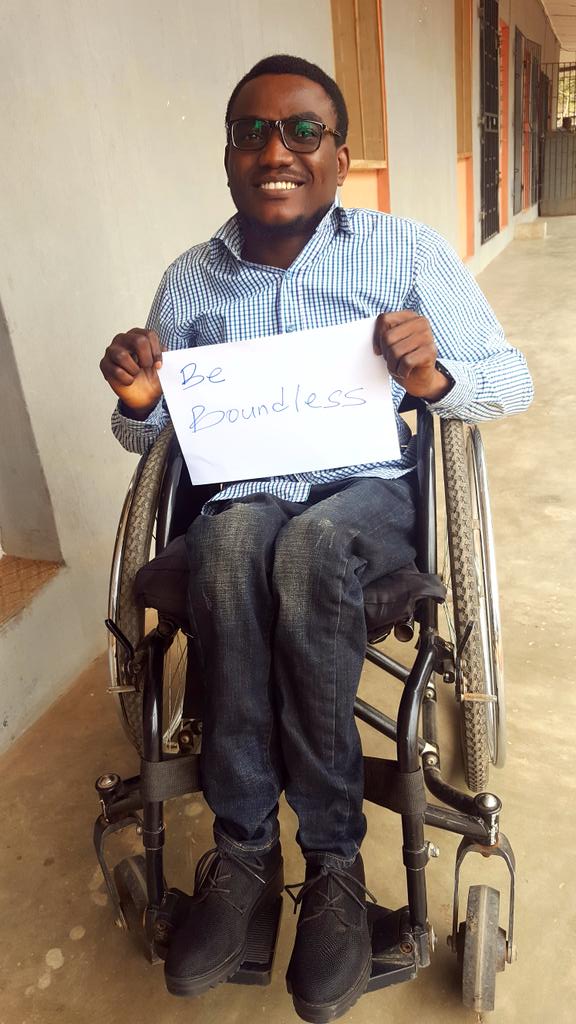 Be
Boundless